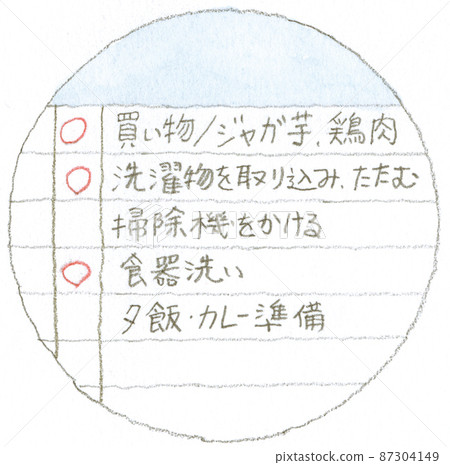 買い物/ジャガ芋、鶏肉
洗濯物を取り込み、たたむ
掃除機をかける
食器洗い
夕飯・カレー準備
PIXTA
87304149